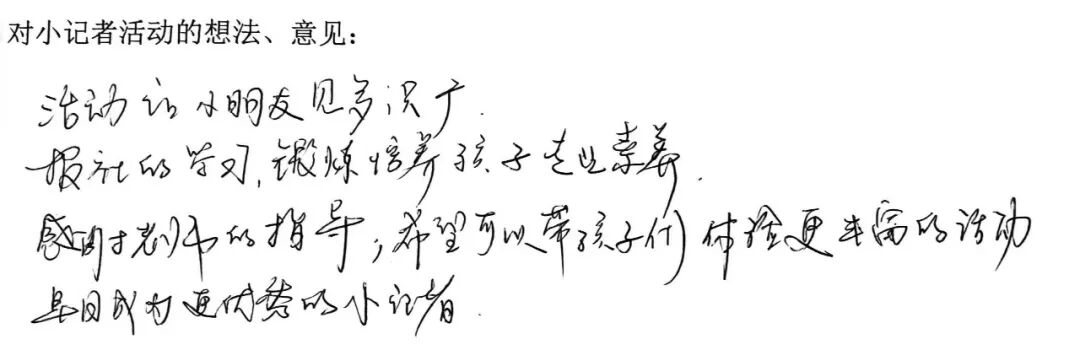 对小记者活动的想法、意见：
活动让小朋友见多识广.
报社的学习,锻炼培养孩子专业素养.
感谢老师的指导,希望可以带孩子们体验更丰富的活动
早日成为更优秀的小记者.